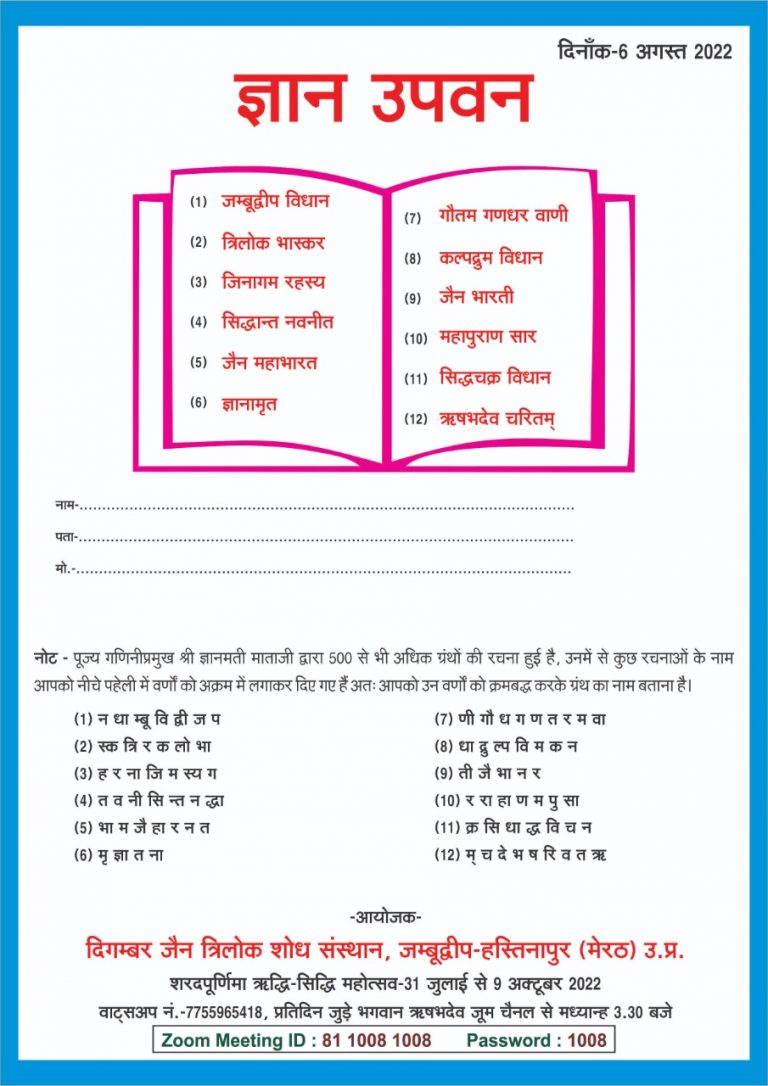 दिनाँक-6 अगस्त 2022
ज्ञान उपवन
(1) जम्बूद्वीप विधान
(2) त्रिलोक भास्कर
(3) जिनागम रहस्य
(4) सिद्धान्त नवनीत
(5) जैन महाभारत
(6) ज्ञानामृत
(7) गौतम गणधर वाणी
(8) कल्पद्रुम विधान
(9) जैन भारती
(10) महापुराण सार
(11) सिद्धचक्र विधान
(12) ऋषभदेव चरितम्
नाम-.............................................................................................................
पता-.............................................................................................................
मो.-.............................................................................................................
नोट - पूज्य गणिनीप्रमुख श्री ज्ञानमती माताजी द्वारा 500 से भी अधिक ग्रंथों की रचना हुई है, उनमें से कुछ रचनाओं के नाम
आपको नीचे पहेली में वर्णों को अक्रम में लगाकर दिए गए हैं अतः आपको उन वर्णों को क्रमबद्ध करके ग्रंथ का नाम बताना है।
(1) न धा म्बू वि द्वी ज प
(2) स्क त्रि र क लो भा
(3) ह र ना जि म स्य ग
(4) त व नी सि न्त न द्धा
(5) भा म जै हा र न त
(6) मृ ज्ञा त ना
(7) णी गौ ध ग ण त र म वा
(8) धा द्रु ल्प वि म क न
(9) ती जै भा न र
(10) र रा हा ण म पु सा
(11) क्र सि धा द्ध वि च न
(12) म् च दे भ ष रि व त ऋ
-आयोजक-
दिगम्बर जैन त्रिलोक शोध संस्थान, जम्बूद्वीप-हस्तिनापुर (मेरठ) उ.प्र.
शरदपूर्णिमा ऋद्धि-सिद्धि महोत्सव-31 जुलाई से 9 अक्टूबर 2022
वाट्सअप नं.-7755965418, प्रतिदिन जुड़े भगवान ऋषभदेव जूम चैनल से मध्यान्ह 3.30 बजे
Zoom Meeting ID : 81 1008 1008 Password : 1008